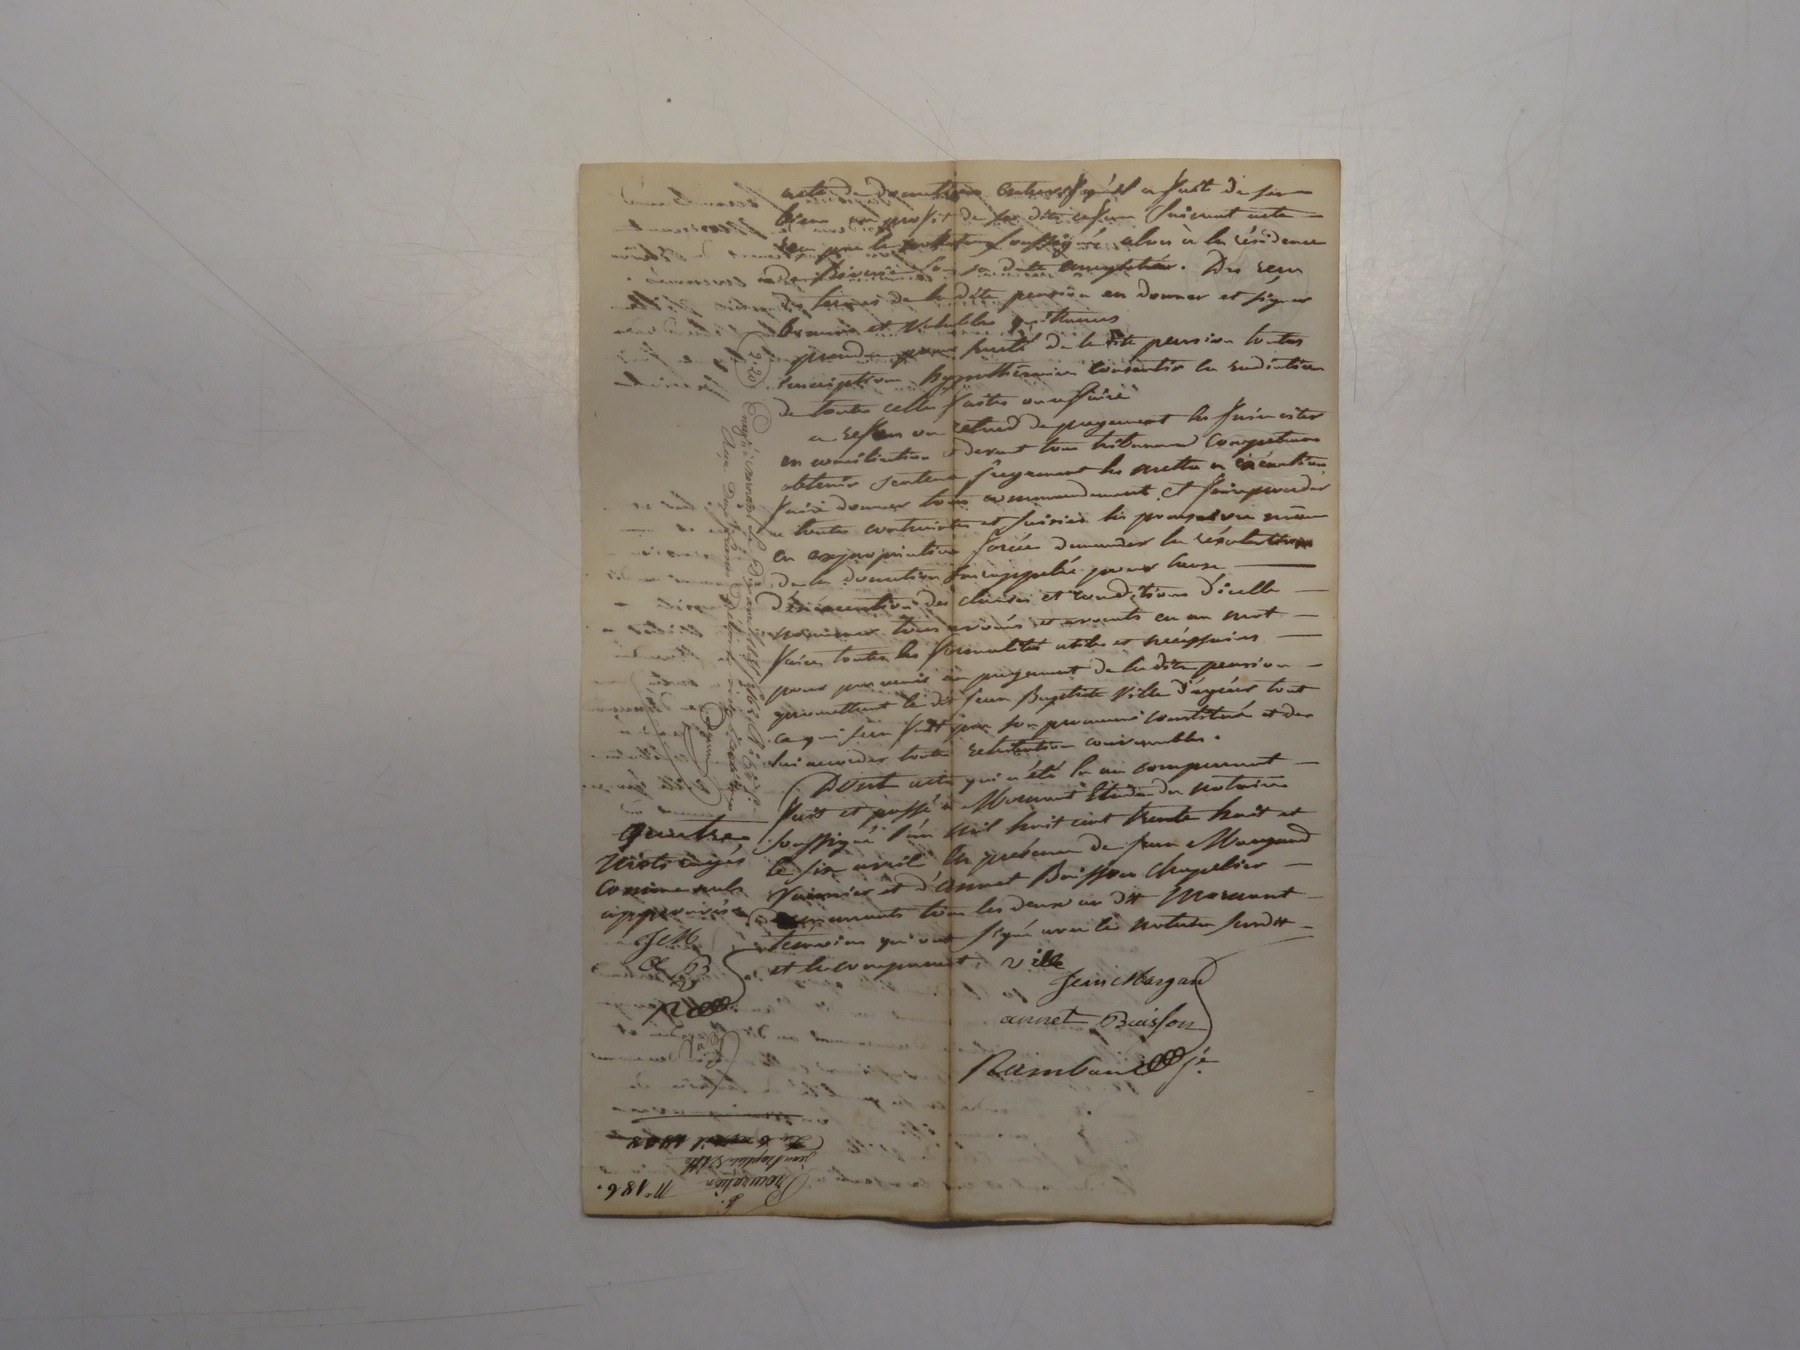 acte de donation entrevifs qu'il a fait de ses
biens au profit de ses dits enfans suivant acte
reçu par le notaire soussigné alors à la résidence
de sous sa date enregistré. Des reçus
termes de la dite pension en donner et signer
bonnes et valables quittances
prendre pour sureté de la dite pension toutes
inscriptions hypothécaires consentir la radiation
de toutes celles faites ou a faire
a refus ou retard de payement les faire citer
en conciliation et devant tous tribunaux compétans
obtenir sentence jugement les mettre a exécution
faire donner tous commandements et faire procéder
a toutes contraintes et saisies les poursuivre même
en expropriation forcée demander la résolution
de la donation surappelée pour cause
d'inexécution des clauses et conditions d'icelle
nommer tous avoués et avocats en un mot
faire toutes les formalités utiles et nécéssaires
pour parvenir au payement de la dite pension
promettant le dit Jean Baptiste Ville d'agréer tout
ce qui sera fait par son procureur constitué et de
lui accorder toute rétribution convenables.
Dont acte qui a été lu au comparant
fait et passé a Mornant Etude du notaire
soussigné l'an mil huit cent trente huit et
le six avril En présence de Jean Margand
et d'annet Buisson Chapelier
demeurants tous les deux au dit Mornant
temoins qui ont signé avec le notaire susdit
et le comparant. ville
Jean Margand
annet Buisson
Rambaud je.
quatre
mots rayés
comme nuls
approuvés
J M
a B
R
V
(220) Enregé à Mornant Le Dix avril 1838
Reçu Deux francs Décime vingt Centimes
N° 186.
Procuration
Jean Baptiste Ville
Du 6 avril 1838